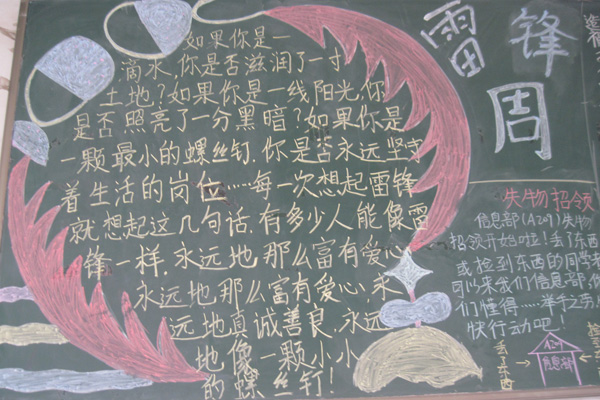 雷锋周
如果你是一
滴水,你是否滋润了一寸
土地?如果你是一线阳光,你
是否照亮了一分黑暗?如果你是
一颗最小的螺丝钉,你是否永远坚守
着生活的岗位……每一次想起雷锋
就想起这几句话,有多少人能像雷
锋一样,永远地那么富有爱心,
永远地那么富有爱心,永
远地真诚善良,永远
地像一颗小小
的螺丝钉!
失物招领
信息部(A209)失物
招领开始啦!丢了东西
或捡到东西的同学都
可以来我们信息部,你
们懂得……举手之劳,
快行动吧!
丢了东西
A209
信息部